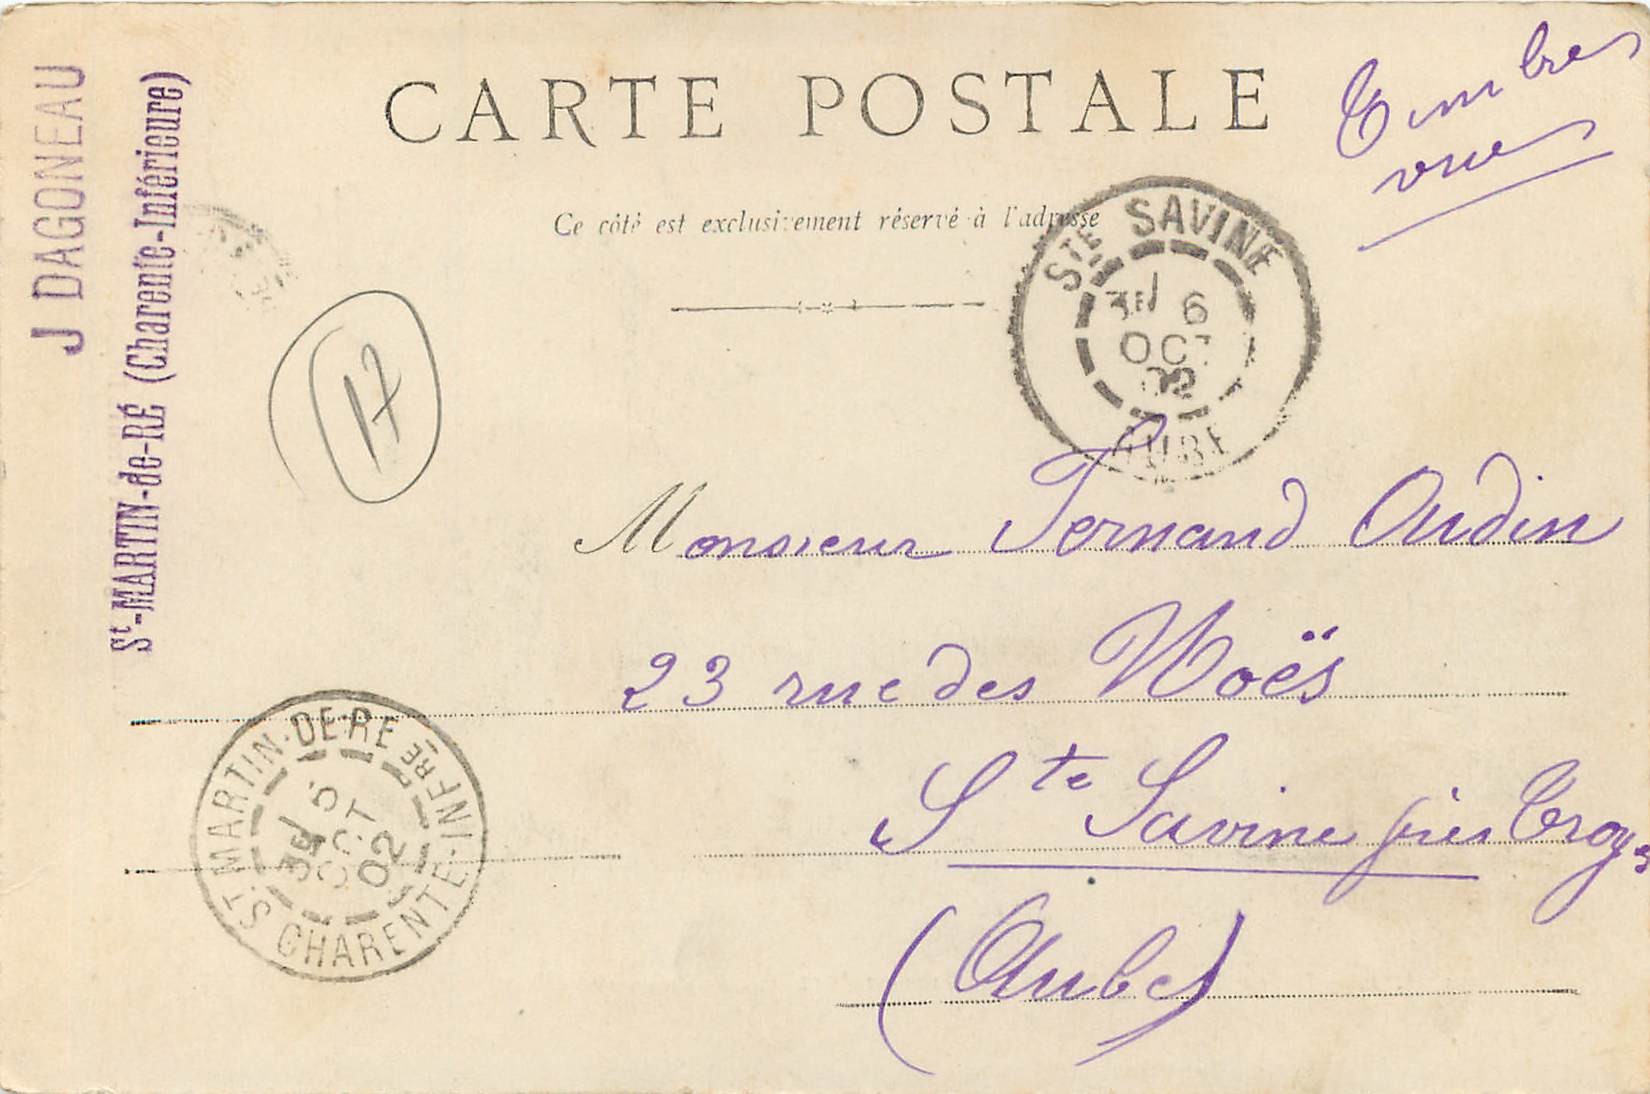 CARTE POSTALE
Timbres
vues
Ce côté est exclusivement réservé à l'adresse
J DAGONEAU
St-MARTIN-de-RÉ (Charente-Inférieure)
17
STE SAVINE
3E/ 6
OCT
02
AUBE
Monsieur Fernand Oudin
23 rue des Noës
Ste Savine près Troyes
(Aube)
ST MARTIN-DE-RE
3E/ 5
OCT
02
CHARENTE-INFRE